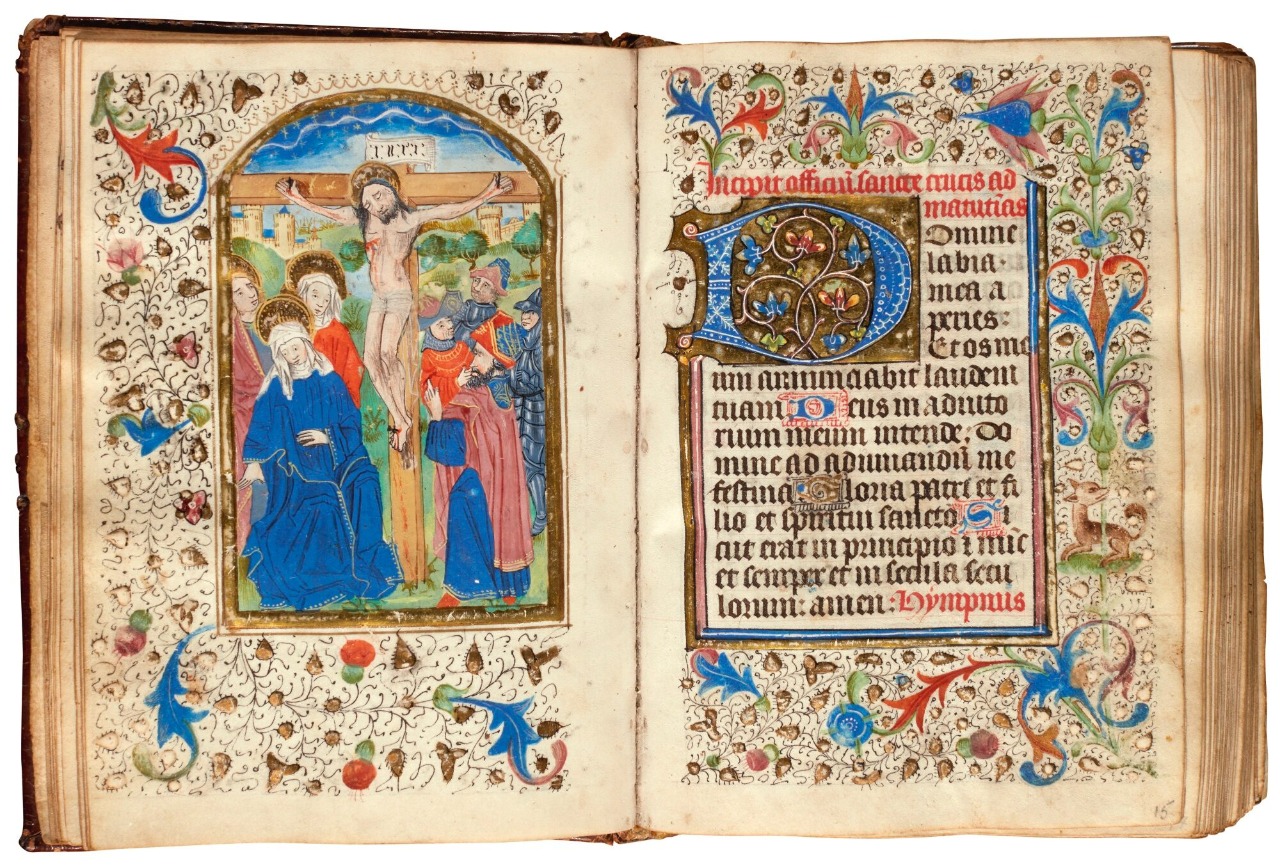 Incipit officiū sancte crucis ad
matutinas
Domine
labia
mea a
peries:
Et os me
um annunciabit laudem
tuam Deus in adiuto
rium meum intende: Do
mine ad adiuuandū me
festina Gloria patri et fi
lio et spiritui sancto Si
cut erat in principio ⁊ nūc
et semper et in secula secu
lorum: amen: Hympnus
15